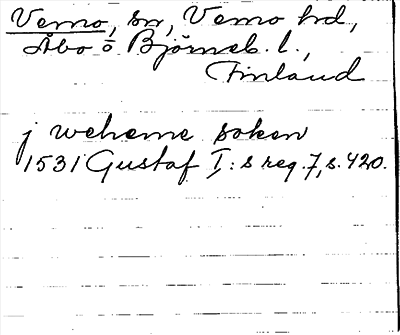 Vemo, sn, Vemo hd,
Åbo o Björneb. l.,
Finland
j weheme soken
1531 Gustaf I:s reg. 7, s. 420.